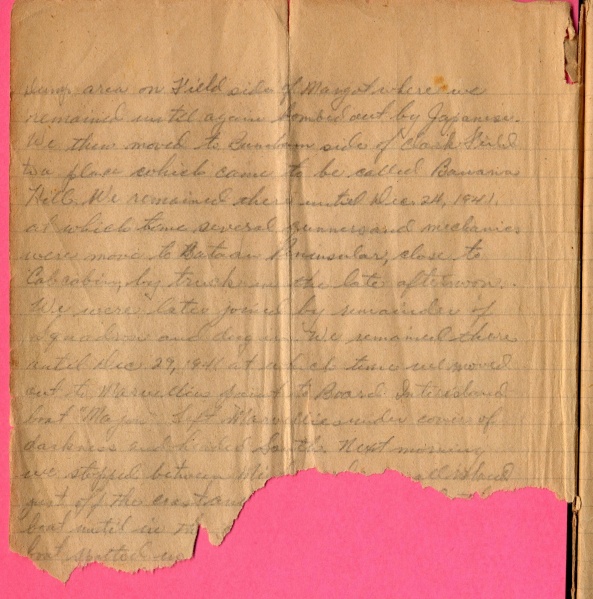 area on Field side of Margot where we
remained until again bombed out by Japanese.
We then moved to side of Clark Field
to a place which came to be called Banana
Hill. We remained there until Dec 24, 1941.
at which time several gunners and mechanics
were move to Bataan Peninsular, close to
Cabcabin, by truck in the late afternoon.
We were later joined by remainder of
squadron and dug in. We remained there
until Dec. 29, 1941 at which time we moved
out to Marvellies point to Board Interisland
boat "Mayon" Left Marvellies under cover of
darkness and headed South. Next morning
we stopped between
just off the coast
boat until in the
boat spotted us